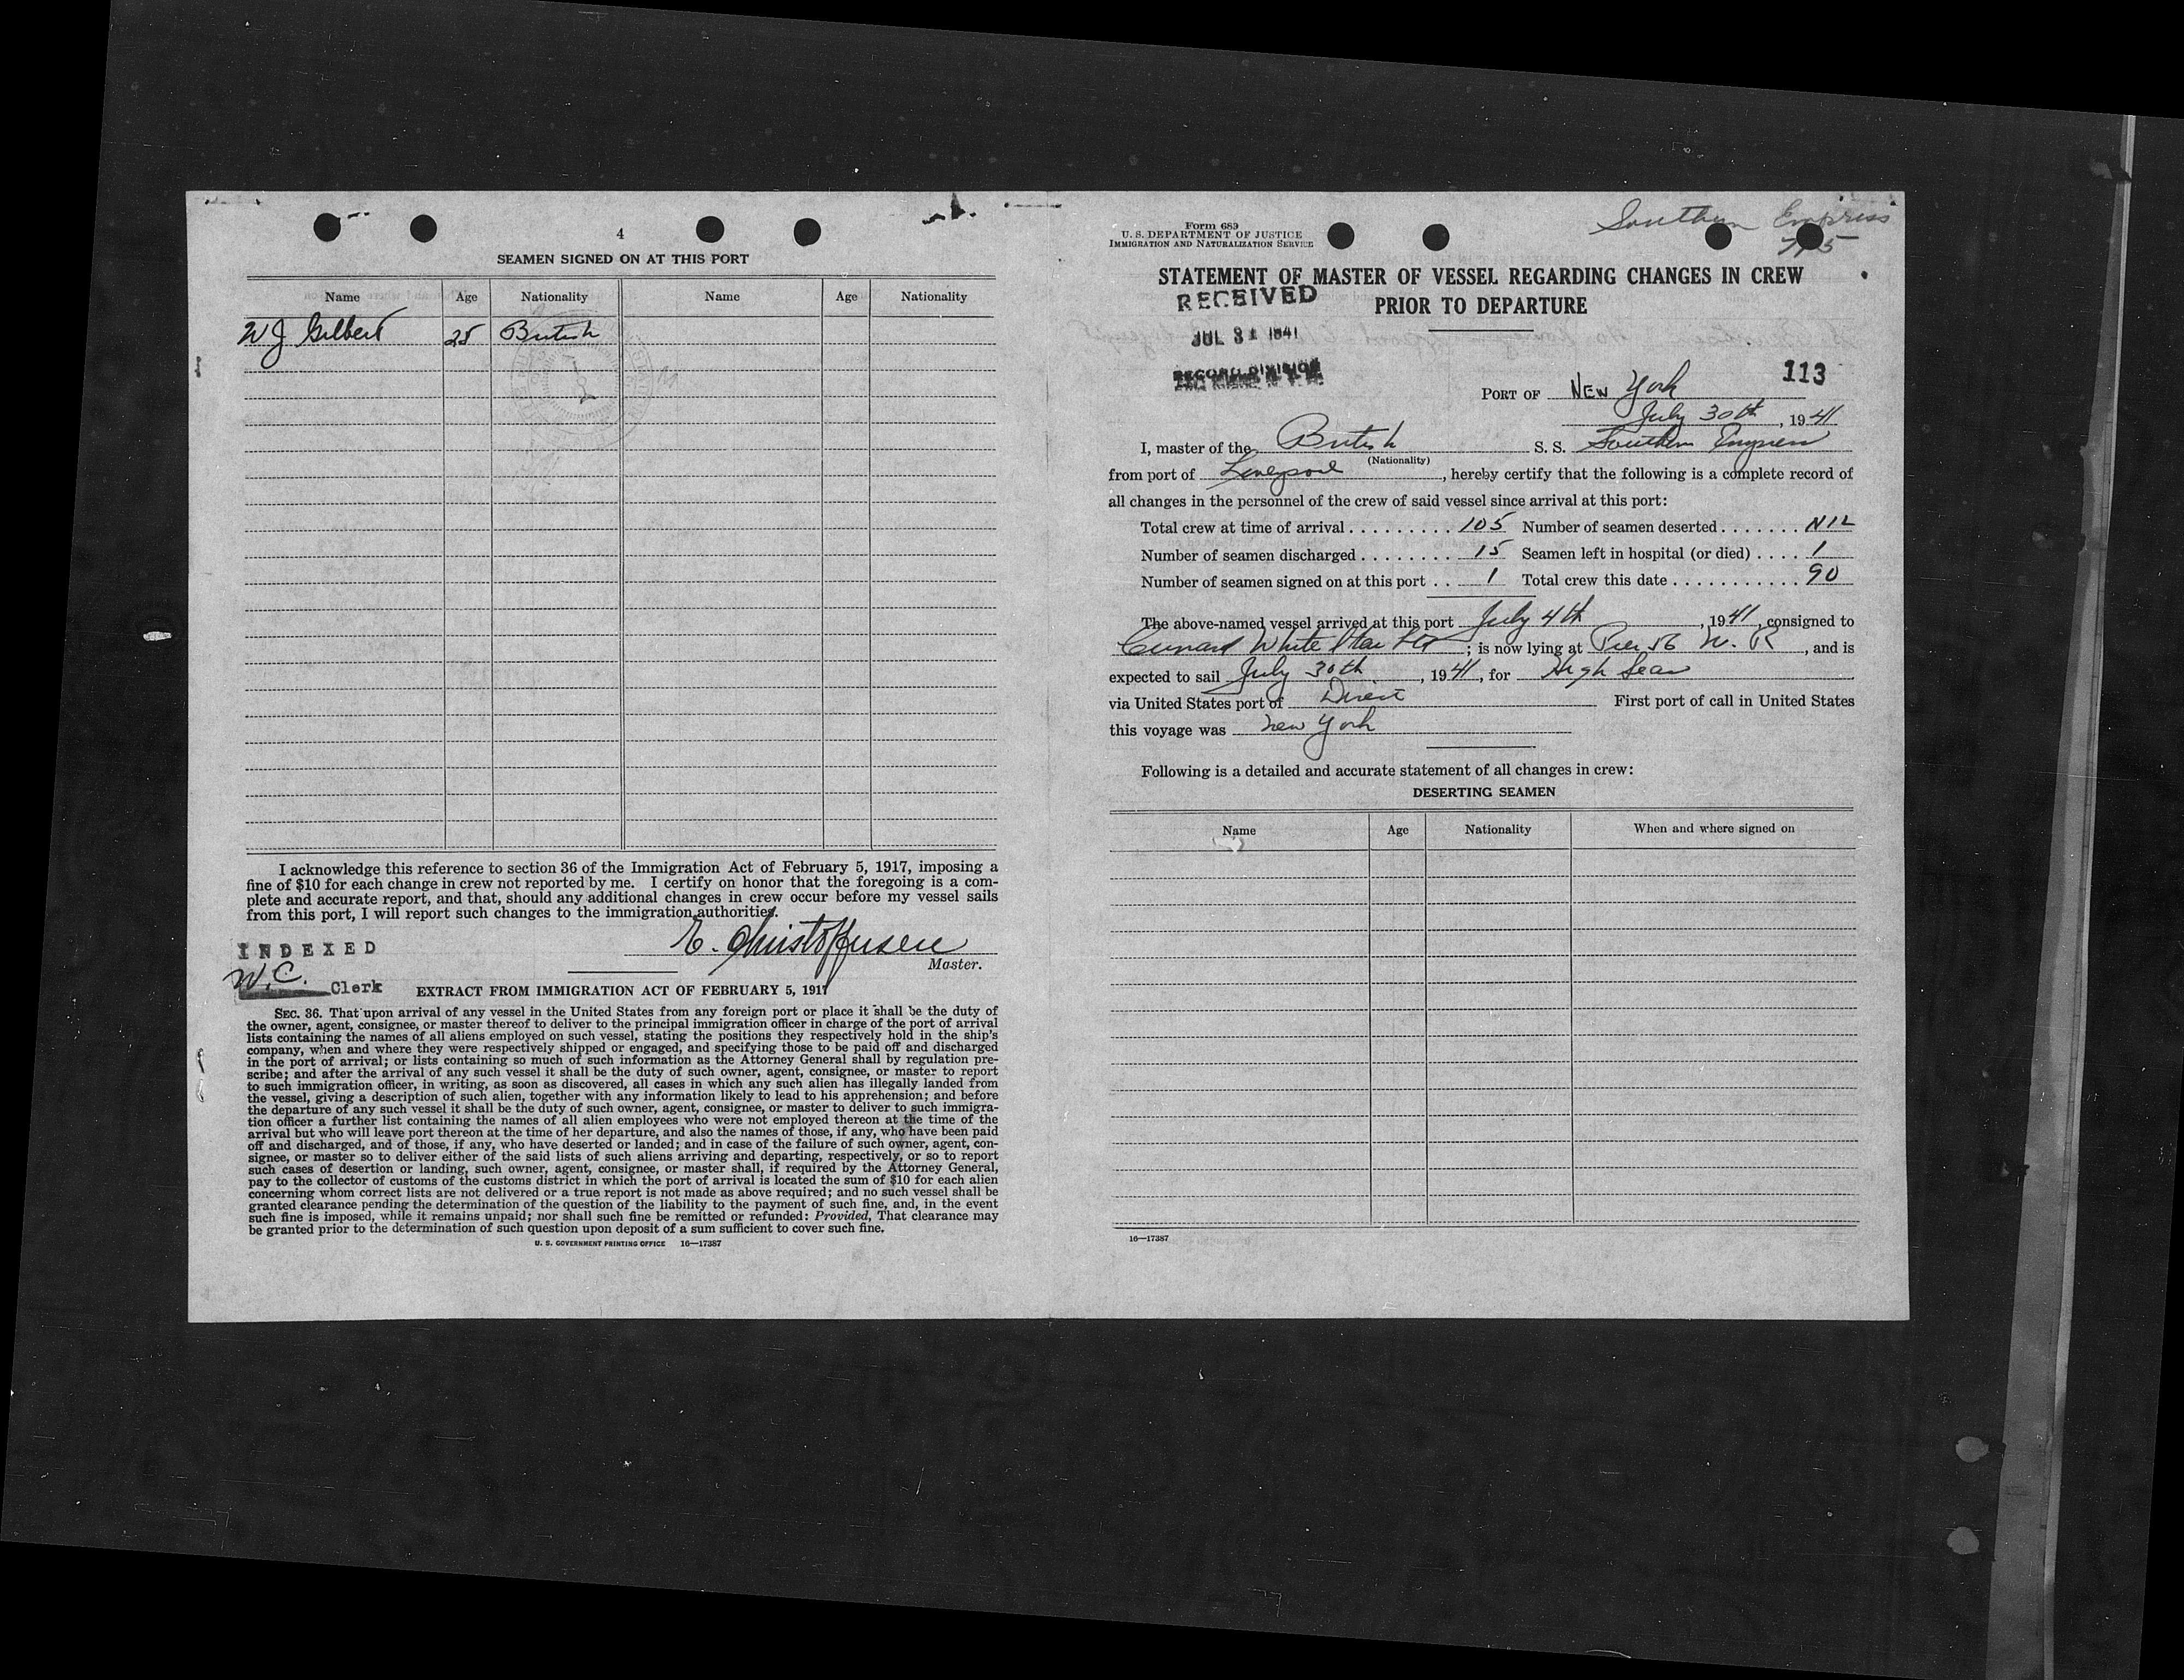 4
SEAMEN SIGNED ON AT THIS PORT
Name Age Nationality Name Age Nationality
W J Gilbert 25 British
I acknowledge this reference to section 36 of the Immigration Act of February 5, 1917, imposing a
fine of $10 for each change in crew not reported by me. I certify on honor that the foregoing is a com-
plete and accurate report, and that, should any additional changes in crew occur before my vessel sails
from this port, I will report such changes to the immigration authorities.
E. Christoffersen
Master.
INDEXED
W.C. Clerk
EXTRACT FROM IMMIGRATION ACT OF FEBRUARY 5, 1917
SEC. 36. That upon arrival of any vessel in the United States from any foreign port or place it shall be the duty of
the owner, agent, consignee, or master thereof to deliver to the principal immigration officer in charge of the port of arrival
lists containing the names of all aliens employed on such vessel, stating the positions they respectively hold in the ship's
company, when and where they were respectively shipped or engaged, and specifying those to be paid off and discharged
in the port of arrival; or lists containing so much of such information as the Attorney General shall by regulation pre-
scribe; and after the arrival of any such vessel it shall be the duty of such owner, agent, consignee, or master to report
to such immigration officer, in writing, as soon as discovered, all cases in which any such alien has illegally landed from
the vessel, giving a description of such alien, together with any information likely to lead to his apprehension; and before
the departure of any such vessel it shall be the duty of such owner, agent, consignee, or master to deliver to such immigra-
tion officer a further list containing the names of all alien employees who were not employed thereon at the time of the
arrival but who will leave port thereon at the time of her departure, and also the names of those, if any, who have been paid
off and discharged, and of those, if any, who have deserted or landed; and in case of the failure of such owner, agent, con-
signee, or master so to deliver either of the said lists of such aliens arriving and departing, respectively, or so to report
such cases of desertion or landing, such owner, agent, consignee, or master shall, if required by the Attorney General,
pay to the collector of customs of the customs district in which the port of arrival is located the sum of $10 for each alien
concerning whom correct lists are not delivered or a true report is not made as above required; and no such vessel shall be
granted clearance pending the determination of the question of the liability to the payment of such fine, and, in the event
such fine is imposed, while it remains unpaid; nor shall such fine be remitted or refunded: Provided, That clearance may
be granted prior to the determination of such question upon deposit of a sum sufficient to cover such fine.
U. S. GOVERNMENT PRINTING OFFICE 16—17387
Southern Empress
7/5
Form 689
U. S. DEPARTMENT OF JUSTICE
IMMIGRATION AND NATURALIZATION SERVICE
STATEMENT OF MASTER OF VESSEL REGARDING CHANGES IN CREW
PRIOR TO DEPARTURE
RECEIVED
JUL 31 1941
RECORD DIVISION
113
PORT OF New York
July 30th, 1941
I, master of the British S. S. Southern Empress
(Nationality)
from port of Liverpool, hereby certify that the following is a complete record of
all changes in the personnel of the crew of said vessel since arrival at this port:
Total crew at time of arrival......... 105 Number of seamen deserted....... NIL
Number of seamen discharged........ 15 Seamen left in hospital (or died).... 1
Number of seamen signed on at this port.. 1 Total crew this date........... 90
The above-named vessel arrived at this port July 4th, 1941, consigned to
Cunard White Star Ltd; is now lying at Pier 56 N. R, and is
expected to sail July 30th, 1941, for High Seas
via United States port of Direct First port of call in United States
this voyage was New York
Following is a detailed and accurate statement of all changes in crew:
DESERTING SEAMEN
Name Age Nationality When and where signed on
16—17387